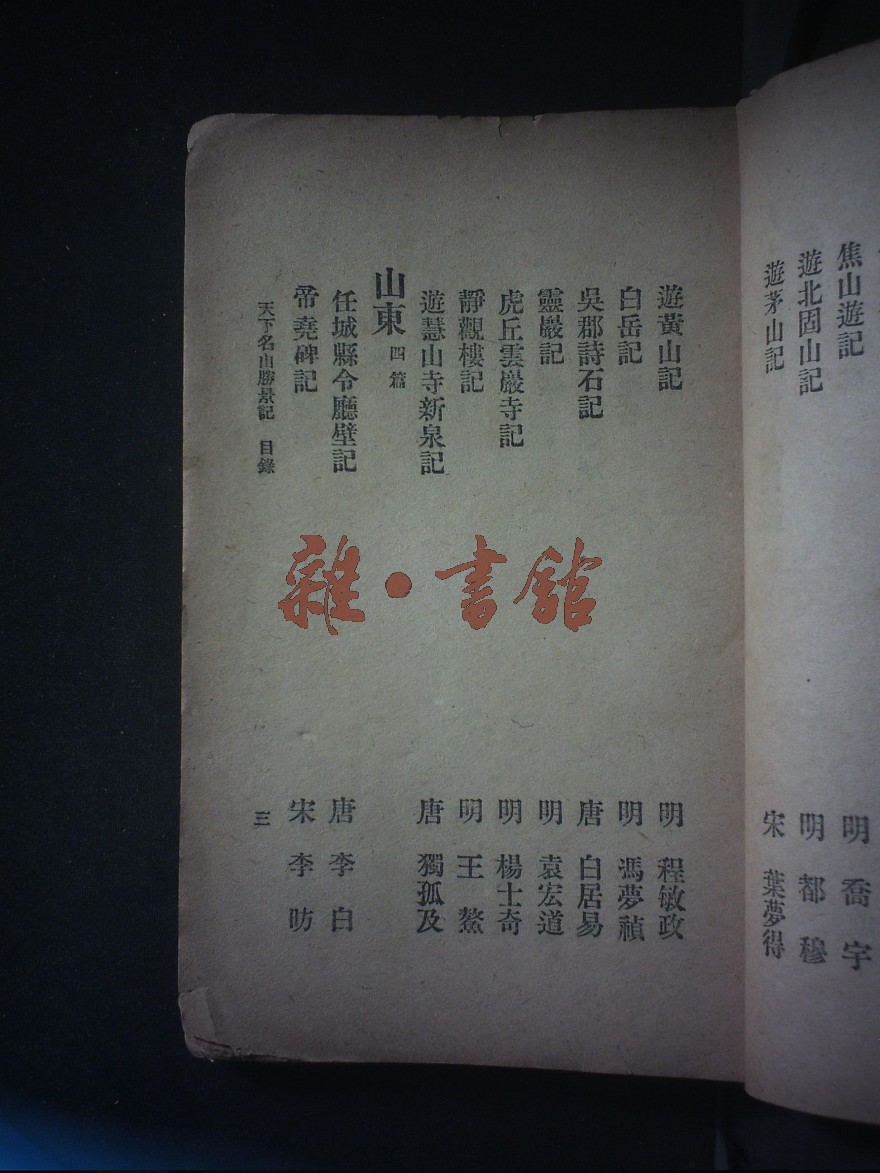 焦山遊記　明　喬宇
遊北固山記　明　都穆
遊茅山記　宋　葉夢得
遊黃山記　明　程敏政
白岳記　明　馮夢禎
吳郡詩石記　唐　白居易
靈巖記　明　袁宏道
虎丘雲巖寺記　明　楊士奇
靜觀樓記　明　王鏊
遊慧山寺新泉記　唐　獨孤及
山東　四篇
任城縣令廳壁記　唐　李白
帝堯碑記　宋　李昉
天下名山勝景記　目錄　三
雜·書館